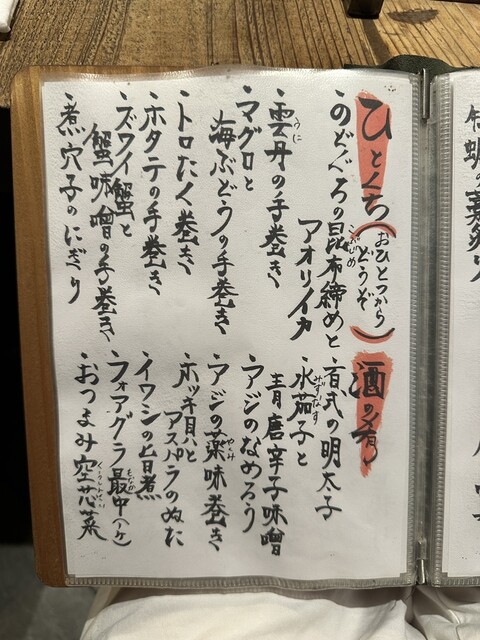 ひとくち(おひとつからどうぞ)
のどぐろの昆布締めと
こぶじめ
アオリイカ
・雲丹の手巻き
うに
・マグロと
海ぶどうの手巻き
・トロたく巻き
・ホタテの手巻き
・ズワイ蟹と
蟹味噌の手巻き
・煮穴子のにぎり
酒の肴
・百式の明太子
・水茄子と
みずなす
青唐辛子味噌
・アジのなめろう
・アジの薬味巻き
やくみ
・ホッキ貝と
アスパラのぬた
・イワシの旨煮
・フォアグラ最中(1ヶ)
もなか
・おつまみ空芯菜